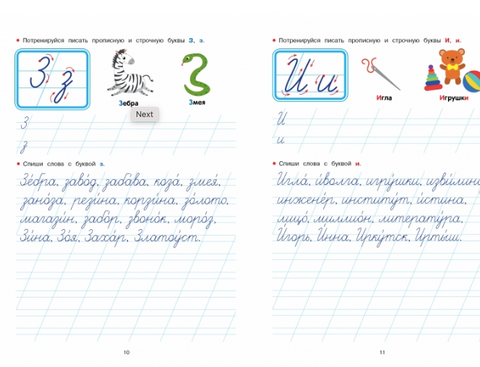 Потренируйся писать прописную и строчную буквы З, з.
З з
Зебра
Змея
Next
З
з
Спиши слова с буквой з.
Зе́бра, заво́д, заба́ва, коза́, змея́,
зано́за, рези́на, корзи́на, зо́лото,
магази́н, забо́р, звоно́к, моро́з,
Зи́на, Зо́я, Заха́р, Златоу́ст.
10
Потренируйся писать прописную и строчную буквы И, и.
И и
Игла
Игрушки
И
и
Спиши слова с буквой и.
Игла́, и́волга, игру́шки, изви́лина
инжене́р, институ́т, и́стина,
лицо́, миллио́н, литерату́ра,
И́горь, И́нна, Ирку́тск, Ирты́ш.
11